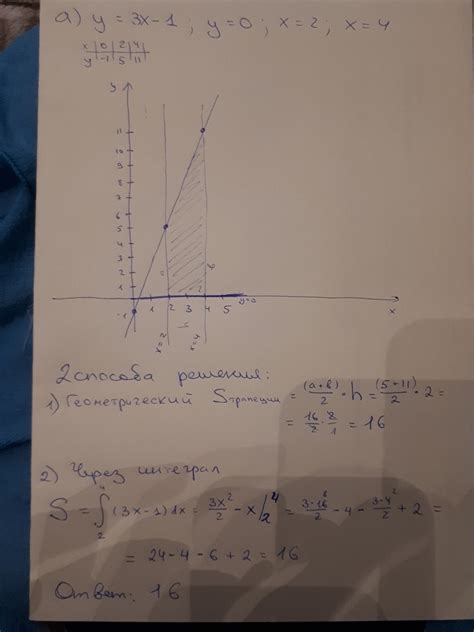 а) y = 3x - 1 ; y = 0 ; x = 2 ; x = 4
x | 0 | 2 | 4
y | -1 | 5 | 11
y
11
10
9
8
7
6
5
4
3
2
1
-1
1 2 3 4 5 y=0
x
x=2
x=4
2 способа решения:
1) Геометрический Sтрапеции = (a+b)/2 · h = (5+11)/2 · 2 =
= 16/2 · 2/1 = 16
2) Через интеграл
S = ∫₂⁴ (3x-1)dx = 3x²/2 - x /₂⁴ = 3·16/2 - 4 - 3·4/2 + 2 =
= 24 - 4 - 6 + 2 = 16
Ответ: 16